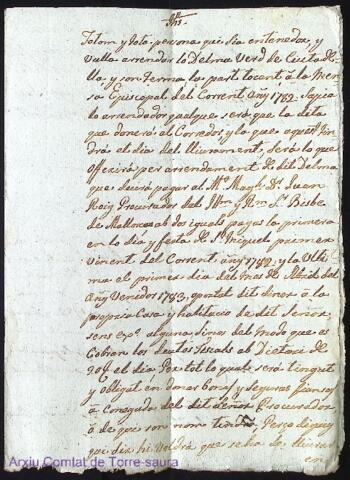 Jhs.
Tothom y tota persona que sia entenedor, y
vulla arrendar lo Delma Verd de Ciutade-
lla, y son Terme la part tocant à la Men-
sa Episcopal del Corrent Añy 1782. Sapia
lo arrendador qualque serà que la dita
que donerà al Corredor, y lo que aquest tin-
drà el dia del lliurament, serà lo que
offerirà per arrendament de dit Delma
que deurà pagar al Mº Magch. Dr. Juan
Roig Procurador del Illm. y Rm. Sr. Bisbe
de Mallorca ab dos iguals pagas la primera
en lo dia y festa de St. Miquel primer
vinent del Corrent añy 1782, y la Ulti-
ma el primer dia del mes de Abril del
Añy Venidor 1783, aportat dit diner à la
propria Casa y habitacio de dit Señor
sens alguna, sinos del modo que es
Cobran los deutes fiscals ab Dietari de
el dia Per tot lo qual serà tingut
y obligat en donar bonas, y seguras fiansas
à Conaguda del dit Señor Procurador
ò de qui son nom tindrà. Perçò digau
qui dir hi voldrà que se ha de lliurar
en
Arxiu Comtat de Torre-saura